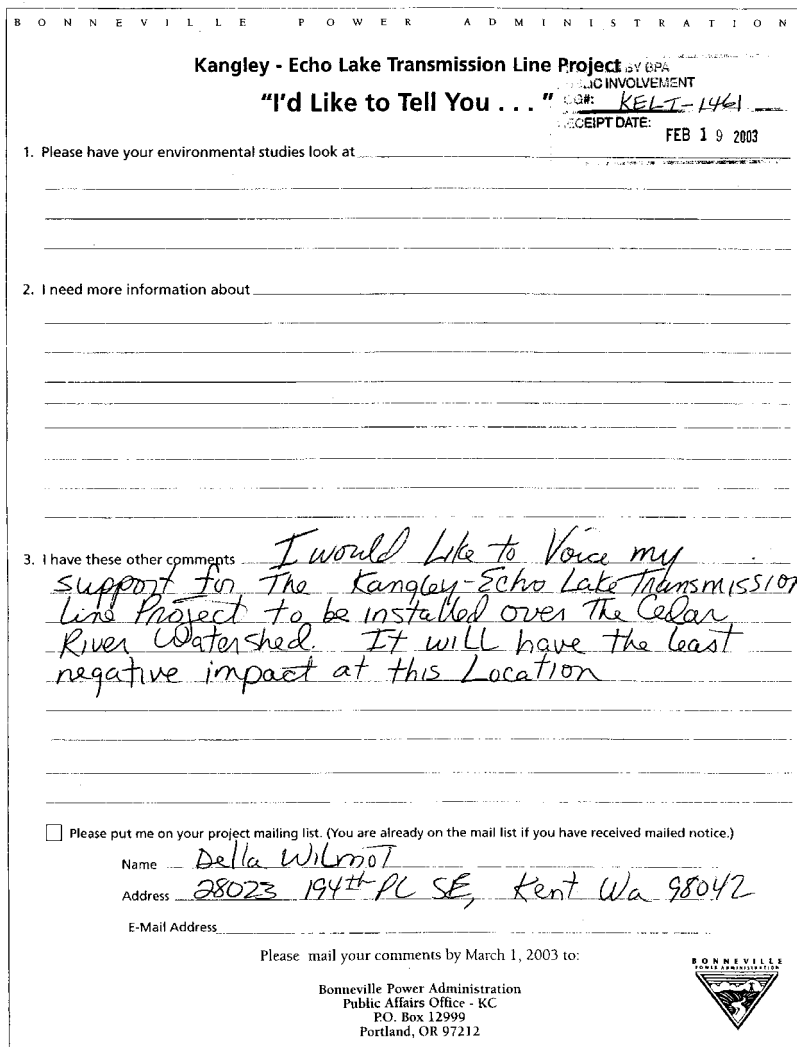 BONNEVILLE POWER ADMINISTRATION
Kangley - Echo Lake Transmission Line Project
BY BPA
INVOLVEMENT
"I'd Like to Tell You . . . "
KELT-1461
RECEIPT DATE:
FEB 19 2003
1. Please have your environmental studies look at
2. I need more information about
3. I have these other comments I would Like to Voice my
support for The Kangley-Echo Lake Transmission
Line Project to be installed over The Cedar
River Watershed. It will have the least
negative impact at this Location
Please put me on your project mailing list. (You are already on the mail list if you have received mailed notice.)
Name Della Wilmot
Address 28023 194th PL SE, Kent Wa 98042
E-Mail Address
Please mail your comments by March 1, 2003 to:
Bonneville Power Administration
Public Affairs Office - KC
P.O. Box 12999
Portland, OR 97212
BONNEVILLE
POWER ADMINISTRATION